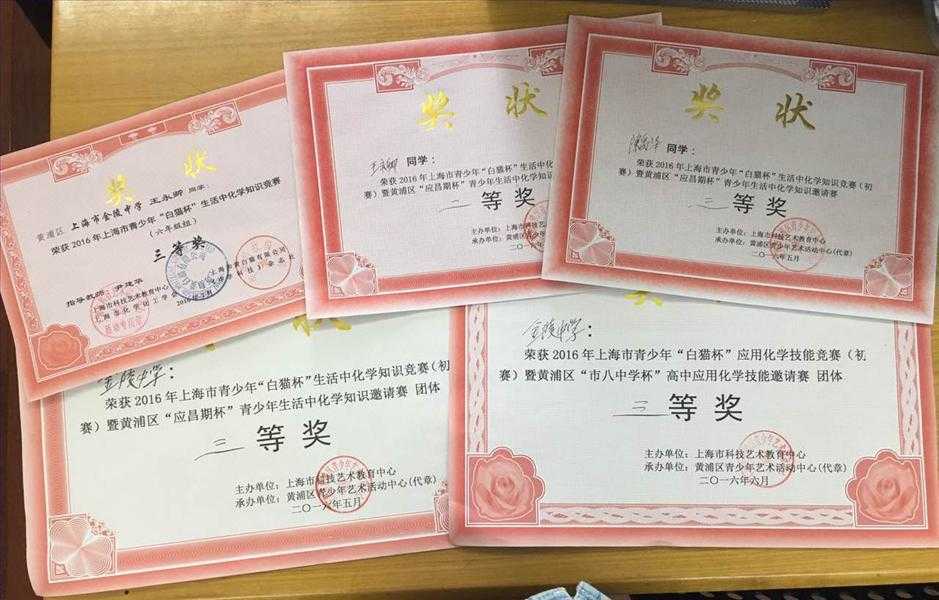 奖状
黄浦区 上海市金陵中学 王永卿 同学：
荣获2016年上海市青少年“白猫杯”生活中化学知识竞赛
（六年级组）
三等奖
指导教师：尹建华
上海市科技艺术教育中心
奖状
王永卿 同学：
荣获2016年上海市青少年“白猫杯”生活中化学知识竞
赛）暨黄浦区“应昌期杯”青少年生活中化学知识
等奖
主办单位：上海市科技
承办单位：黄浦区青少年
二〇一
奖状
同学：
荣获2016年上海市青少年“白猫杯”生活中化学知识竞赛（初
赛）暨黄浦区“应昌期杯”青少年生活中化学知识邀请赛
二等奖
主办单位：上海市科技艺术教育中心
承办单位：黄浦区青少年艺术活动中心（代章）
二〇一六年五月
金陵中学：
荣获2016年上海市青少年“白猫杯”生活中化学知识竞赛（初
赛）暨黄浦区“应昌期杯”青少年生活中化学知识邀请赛 团体
三等奖
主办单位：上海市科技艺术教育中心
承办单位：黄浦区青少年艺术活动中心（代章）
二〇一六年五月
金陵中学：
荣获2016年上海市青少年“白猫杯”应用化学技能竞赛（初
赛）暨黄浦区“市八中学杯”高中应用化学技能邀请赛 团体
三等奖
主办单位：上海市科技艺术教育中心
承办单位：黄浦区青少年艺术活动中心(代章)
二〇一六年六月